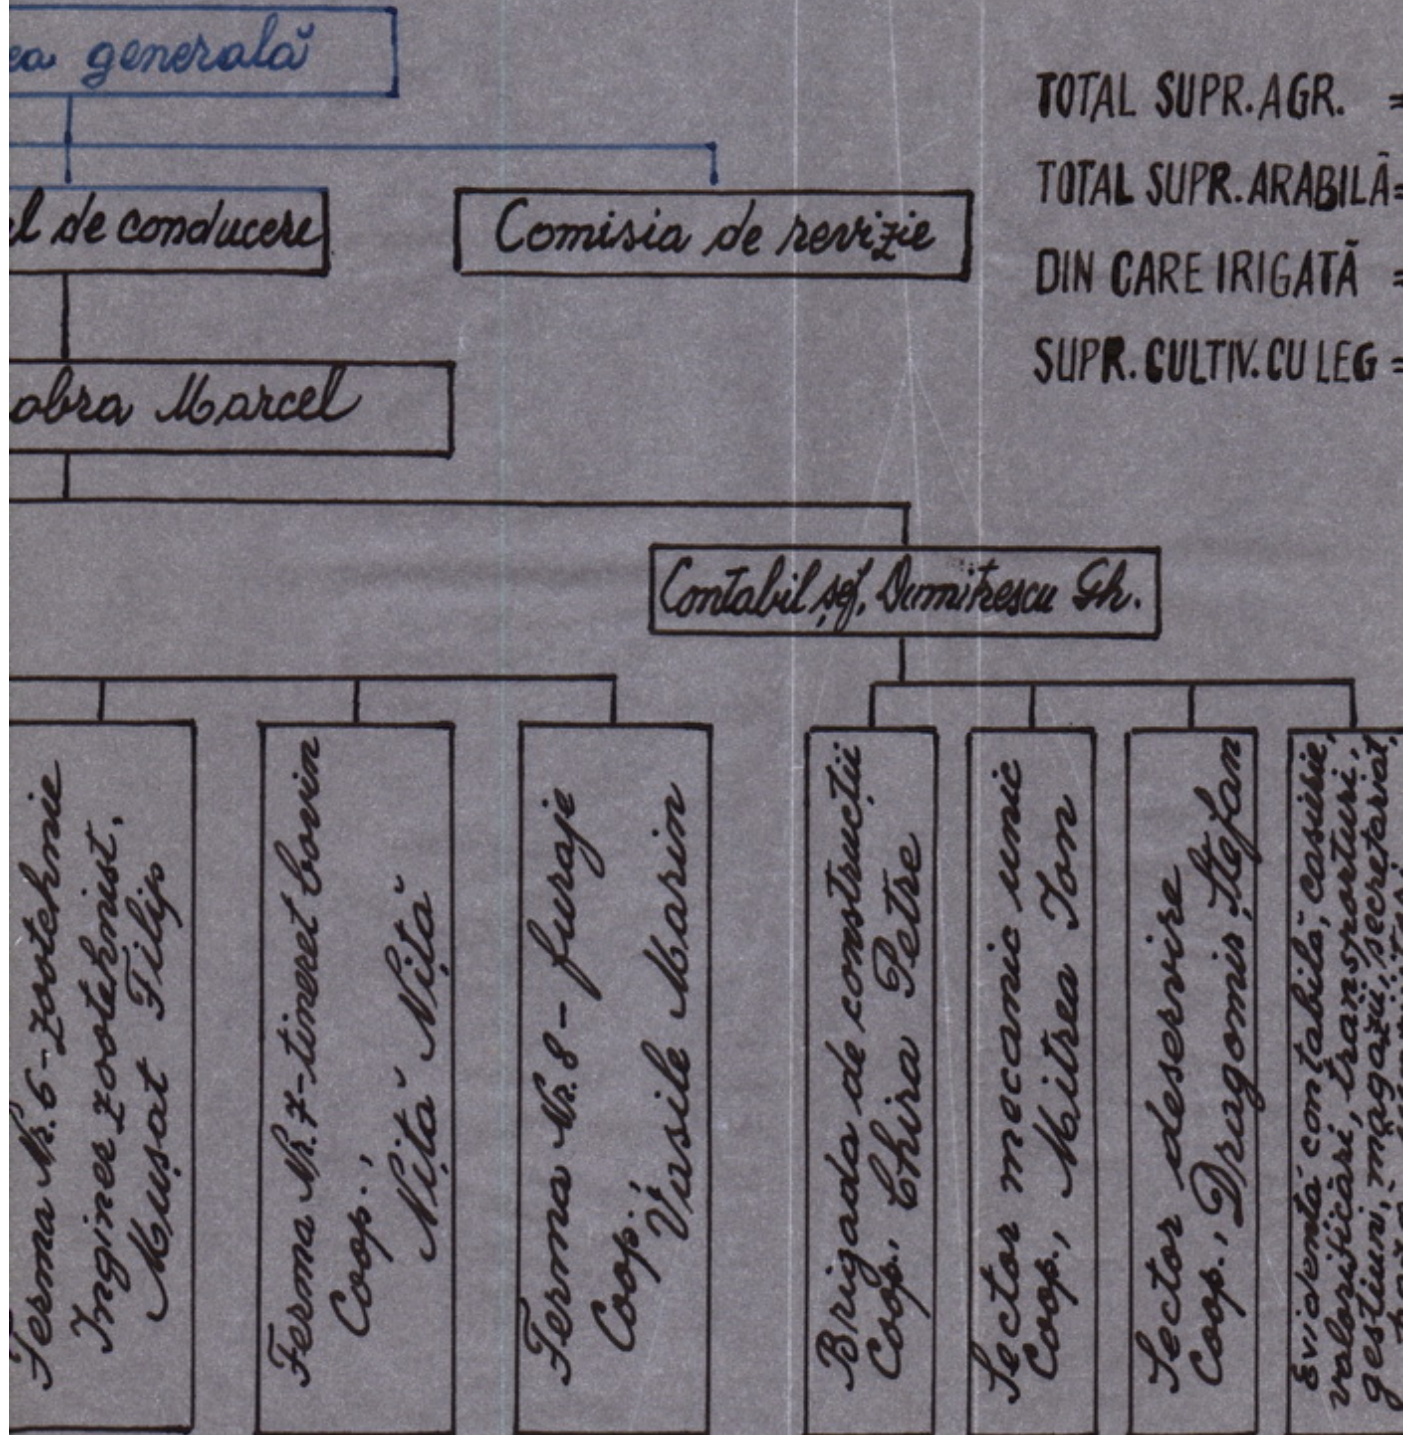 generală
TOTAL SUPR.AGR. =
TOTAL SUPR.ARABILĂ=
DIN CARE IRIGATĂ =
SUPR.CULTIV.CU LEG =
de conducere
Comisia de revizie
Marcel
Contabil șef, Dumitrescu Gh.
Ferma Nr. 6-zootehnie
Inginer zootehnist,
Mușat Filip
Ferma Nr. 7-tineret bovin
Coop.,
Niță Niță
Ferma Nr. 8 - furaje
Coop.,
Vasile Marin
Brigada de construcții
Coop., Chira Petre
Sector mecanic unic
Coop., Mitrea Ion
Sector deservire
Coop., Dragomir Ștefan
Evidență contabilă, casierie,
valorificări, transporturi,
gestiuni, magazii, secretariat,